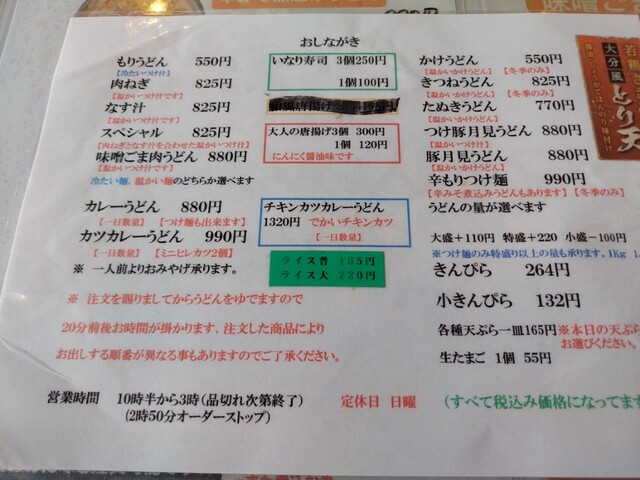 おしながき
もりうどん 550円
【冷たいつけ汁】
肉ねぎ 825円
【温かいつけ汁です】
なす汁 825円
【温かいつけ汁です】
スペシャル 825円
【肉ねぎとなす汁を合わせた温かいつけ汁です】
味噌ごま肉うどん 880円
【温かいつけ汁です】
冷たい麺、温かい麺のどちらか選べます
カレーうどん 880円
【一日数量】 【つけ麺も出来ます】
カツカレーうどん 990円
【一日数量】 【ミニヒレカツ2個】
※ 一人前よりおみやげ承ります。
いなり寿司 3個250円
1個100円
大人の唐揚げ3個 300円
1個 120円
にんにく醤油味です
チキンカツカレーうどん
1320円 でかいチキンカツ
【一日数量】
ライス普 165円
ライス大 220円
かけうどん 550円
【温かいかけうどん】 【冬季のみ】
きつねうどん 825円
【温かいかけうどん】 【冬季のみ】
たぬきうどん 770円
【温かいかけうどん】
つけ豚月見うどん 880円
【温かいつけ汁です】
豚月見うどん 880円
【温かいかけうどん】
辛もりつけ麺 990円
【辛みそ煮込みうどんもあります】 【冬季のみ】
うどんの量が選べます
大盛+110円 特盛+220 小盛-100円
※つけ麺のみ特盛り以上の量も承ります。1Kg
きんぴら 264円
小きんぴら 132円
各種天ぷら一皿165円 ※本日の天ぷら
お選びください。
生たまご 1個 55円
※ 注文を賜りましてからうどんをゆでますので
20分前後お時間が掛かります、注文した商品により
お出しする順番が異なる事もありますのでご了承ください。
営業時間 10時半から3時(品切れ次第終了)
(2時50分オーダーストップ)
定休日 日曜
(すべて税込み価格になってます
大分風
とり天